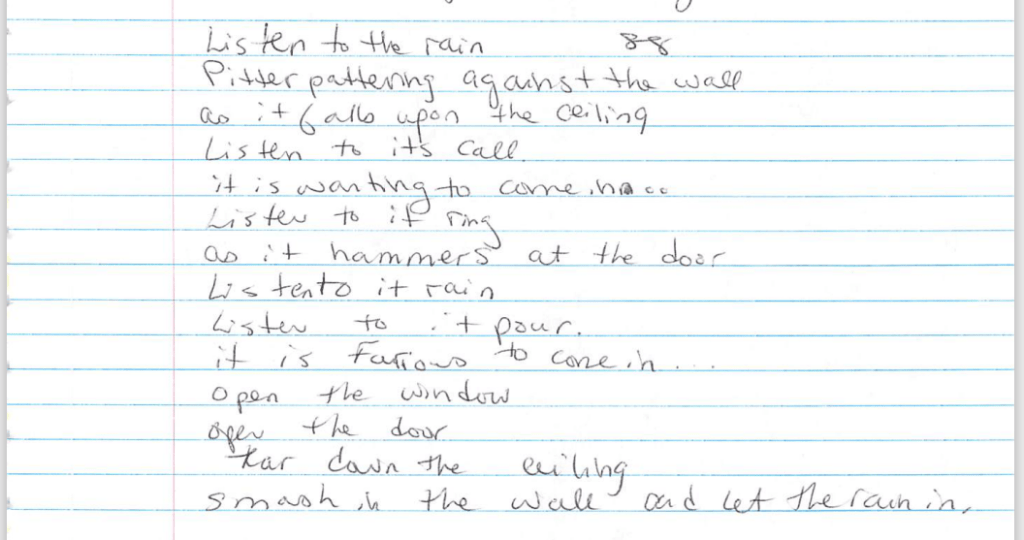 Listen to the rain 88
Pitter pattering against the wall
as it falls upon the ceiling
Listen to it's call
it is wanting to come in...
Listen to it ring
as it hammers at the door
Listen to it rain
Listen to it pour.
it is Furious to come in...
open the window
open the door
tear down the ceiling
smash in the wall and let the rain in.